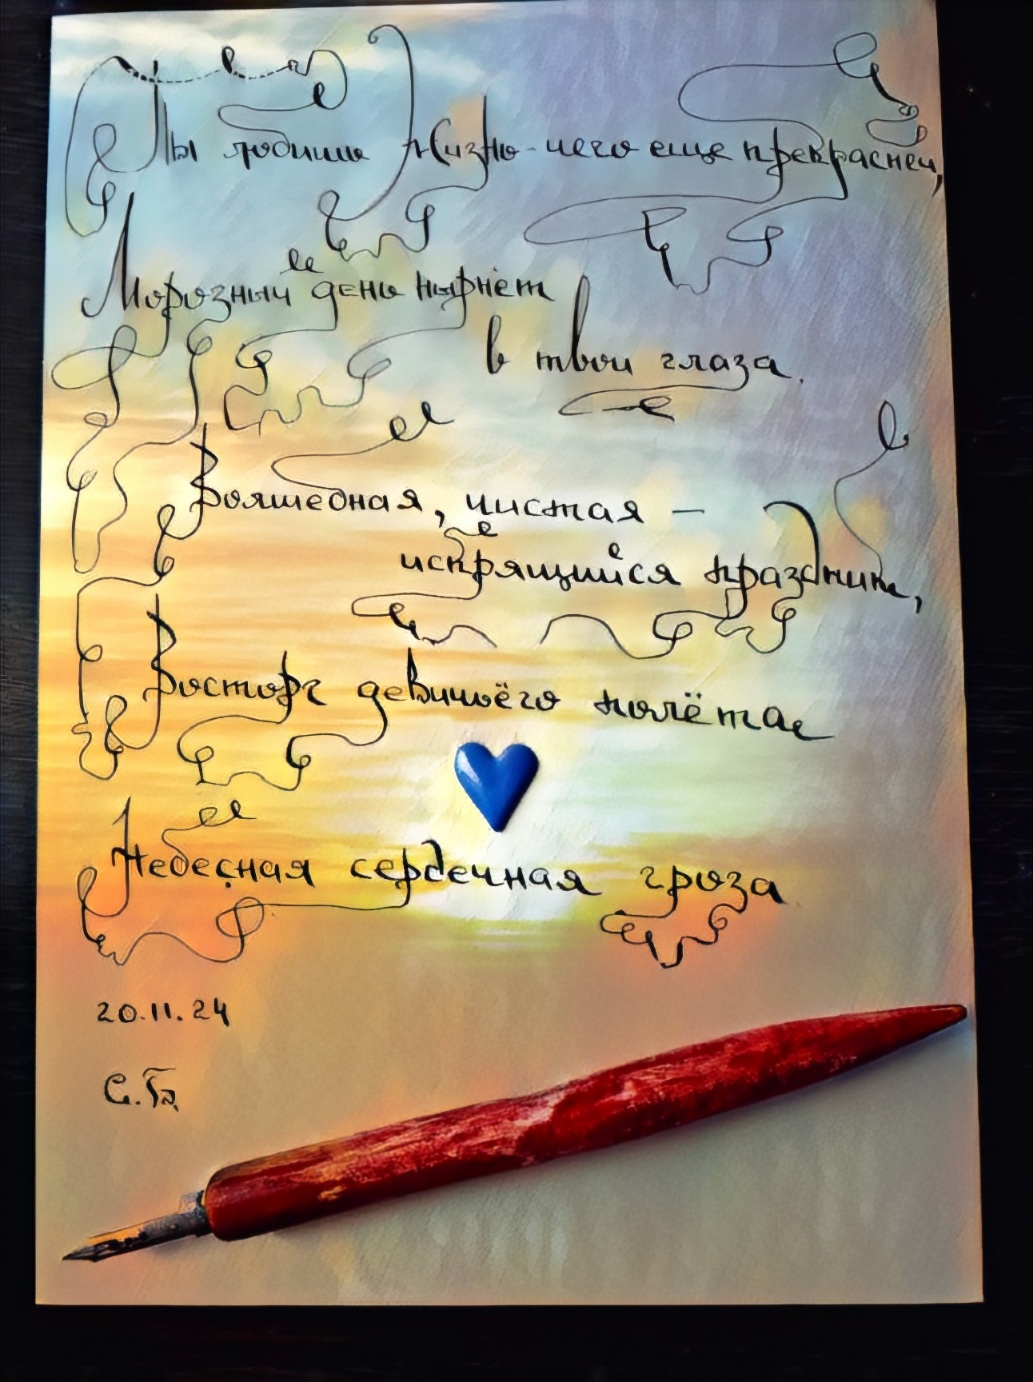 Ты любишь Жизнь - чего еще прекрасней,
Морозный день нырнёт
в твои глаза.
Волшебная, чистая –
искрящийся праздник,
Восторг девичьёго полёта
Небесная сердечная гроза
20.11.24
С.Б.